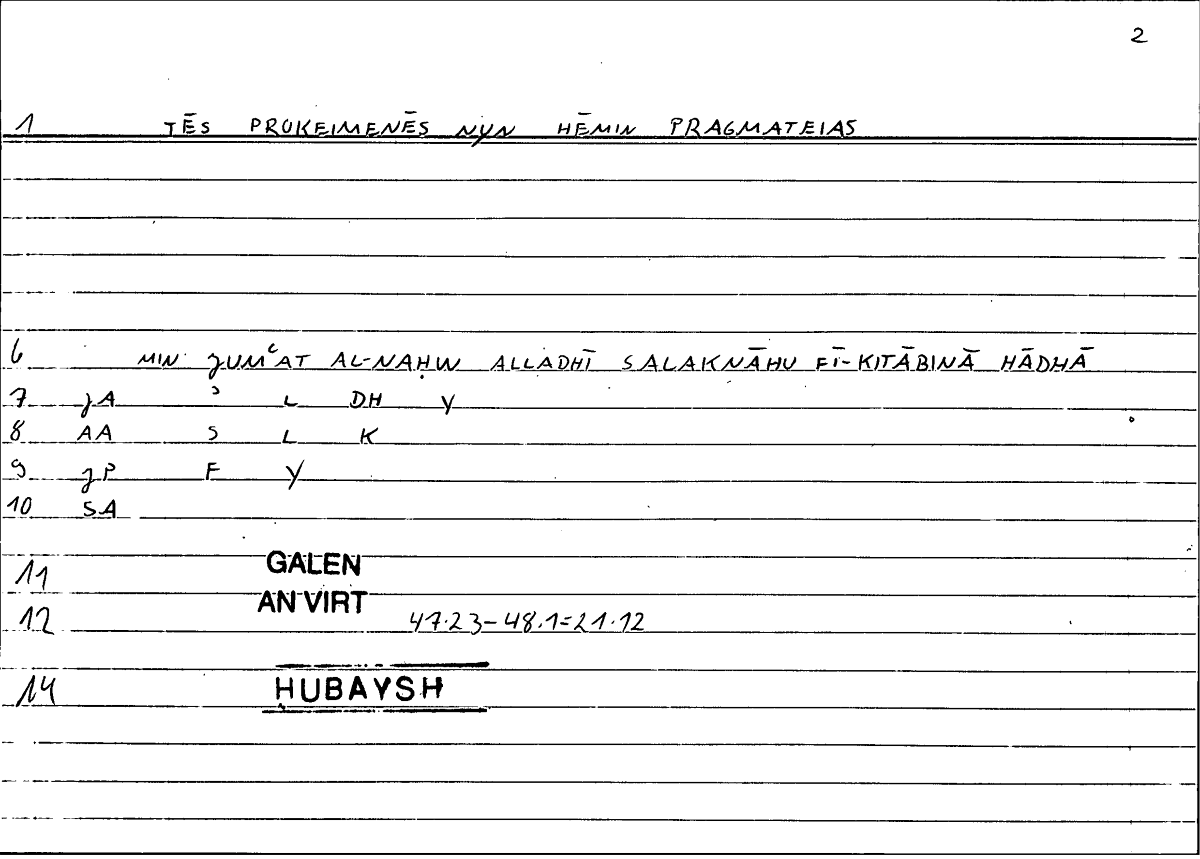 2
1 TĒS PROKEIMENĒS NYN HĒMIN PRAGMATEIAS
6 MIN JUMʿAT AL-NAḤW ALLADHĪ SALAKNĀHU FĪ-KITĀBINĀ HĀDHĀ
7 JA ʾ L DH Y
8 AA S L K
9 JP F Y
10 SA
11 GALEN
12 AN VIRT 47.23-48.1=21.12
14 ḤUBAYSH